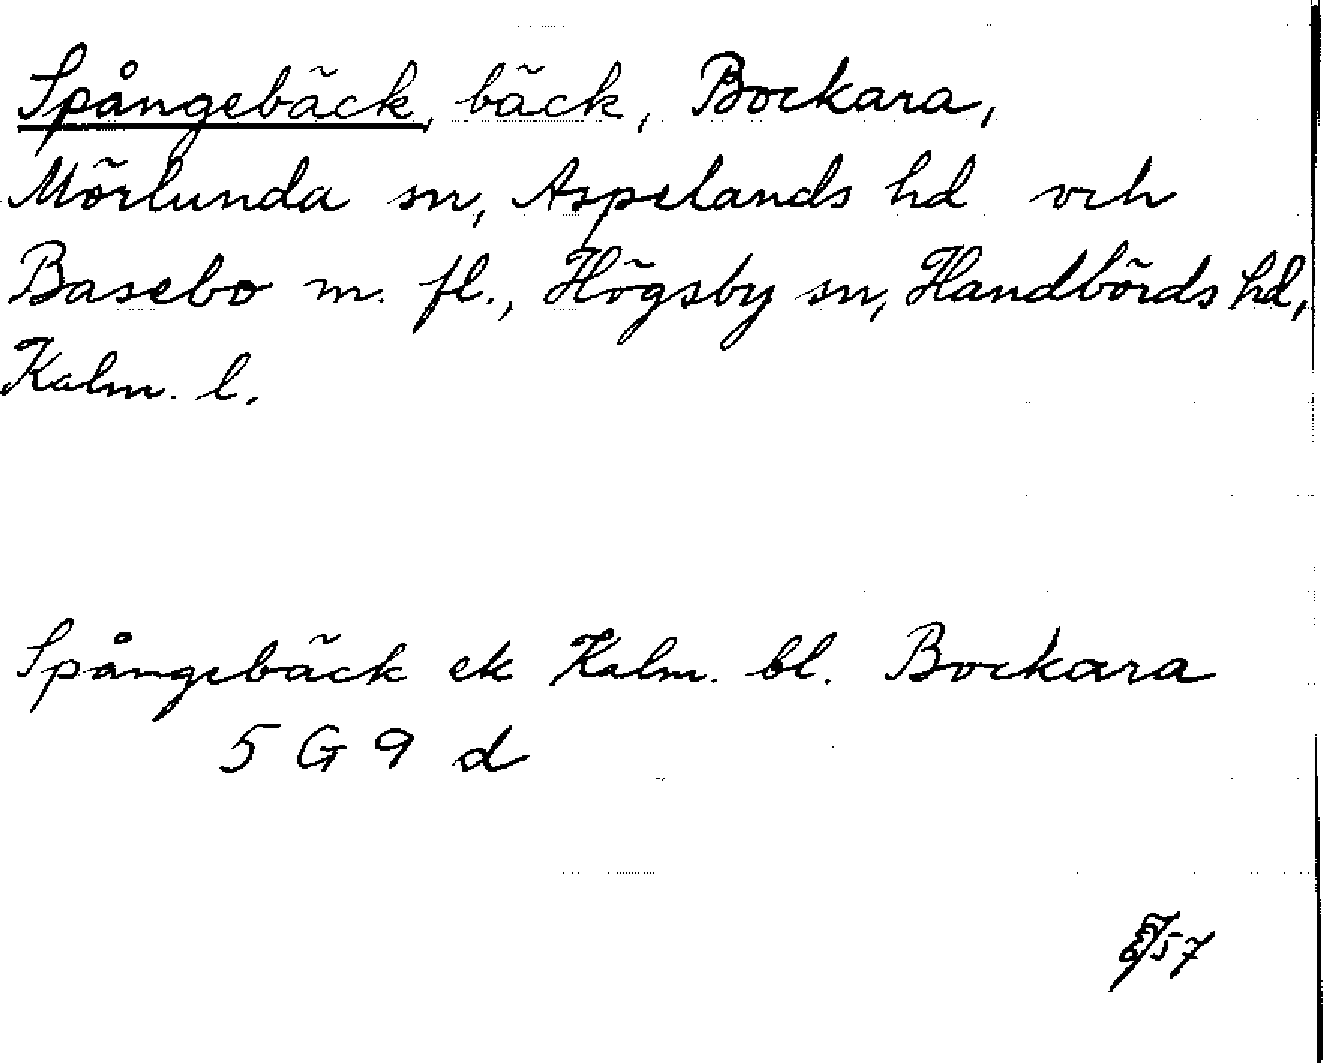 Spångebäck, bäck, Bockara,
Mörlunda sn, Aspelands hd och
Basebo m. fl., Högsby sn, Handbörds hd,
Kalm. l.
Spångebäck ek Kalm. bl. Bockara
5 G 9 d
57